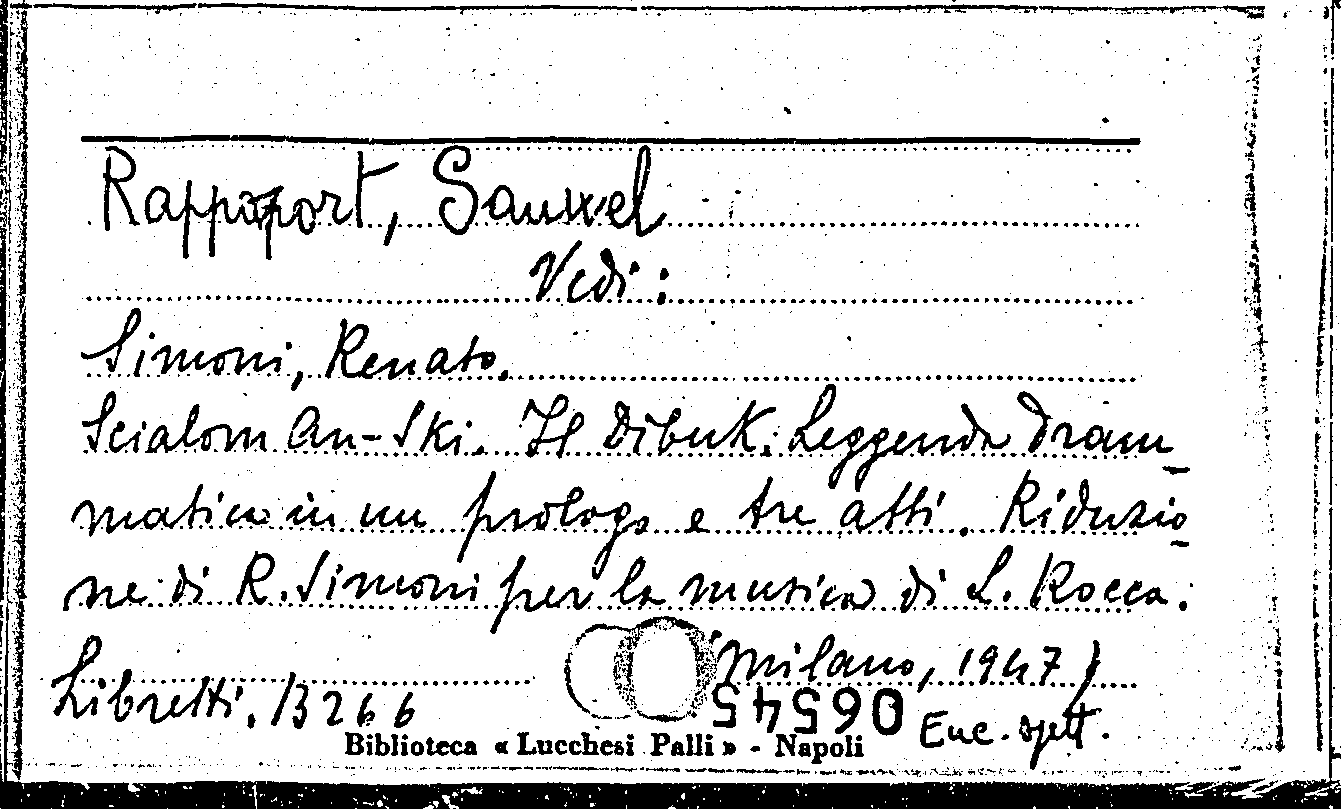 Rappoport, Samuel
Vedi:
Simoni, Renato.
Scialom An-Ski. Il Dibuk. Leggenda dram_
matica in un prologo e tre atti. Riduzio_
ne di R. Simoni per la musica di L. Rocca.
(Milano, 1947)
Libretti. B 266
06545
Enc. spett.
Biblioteca « Lucchesi Palli » - Napoli